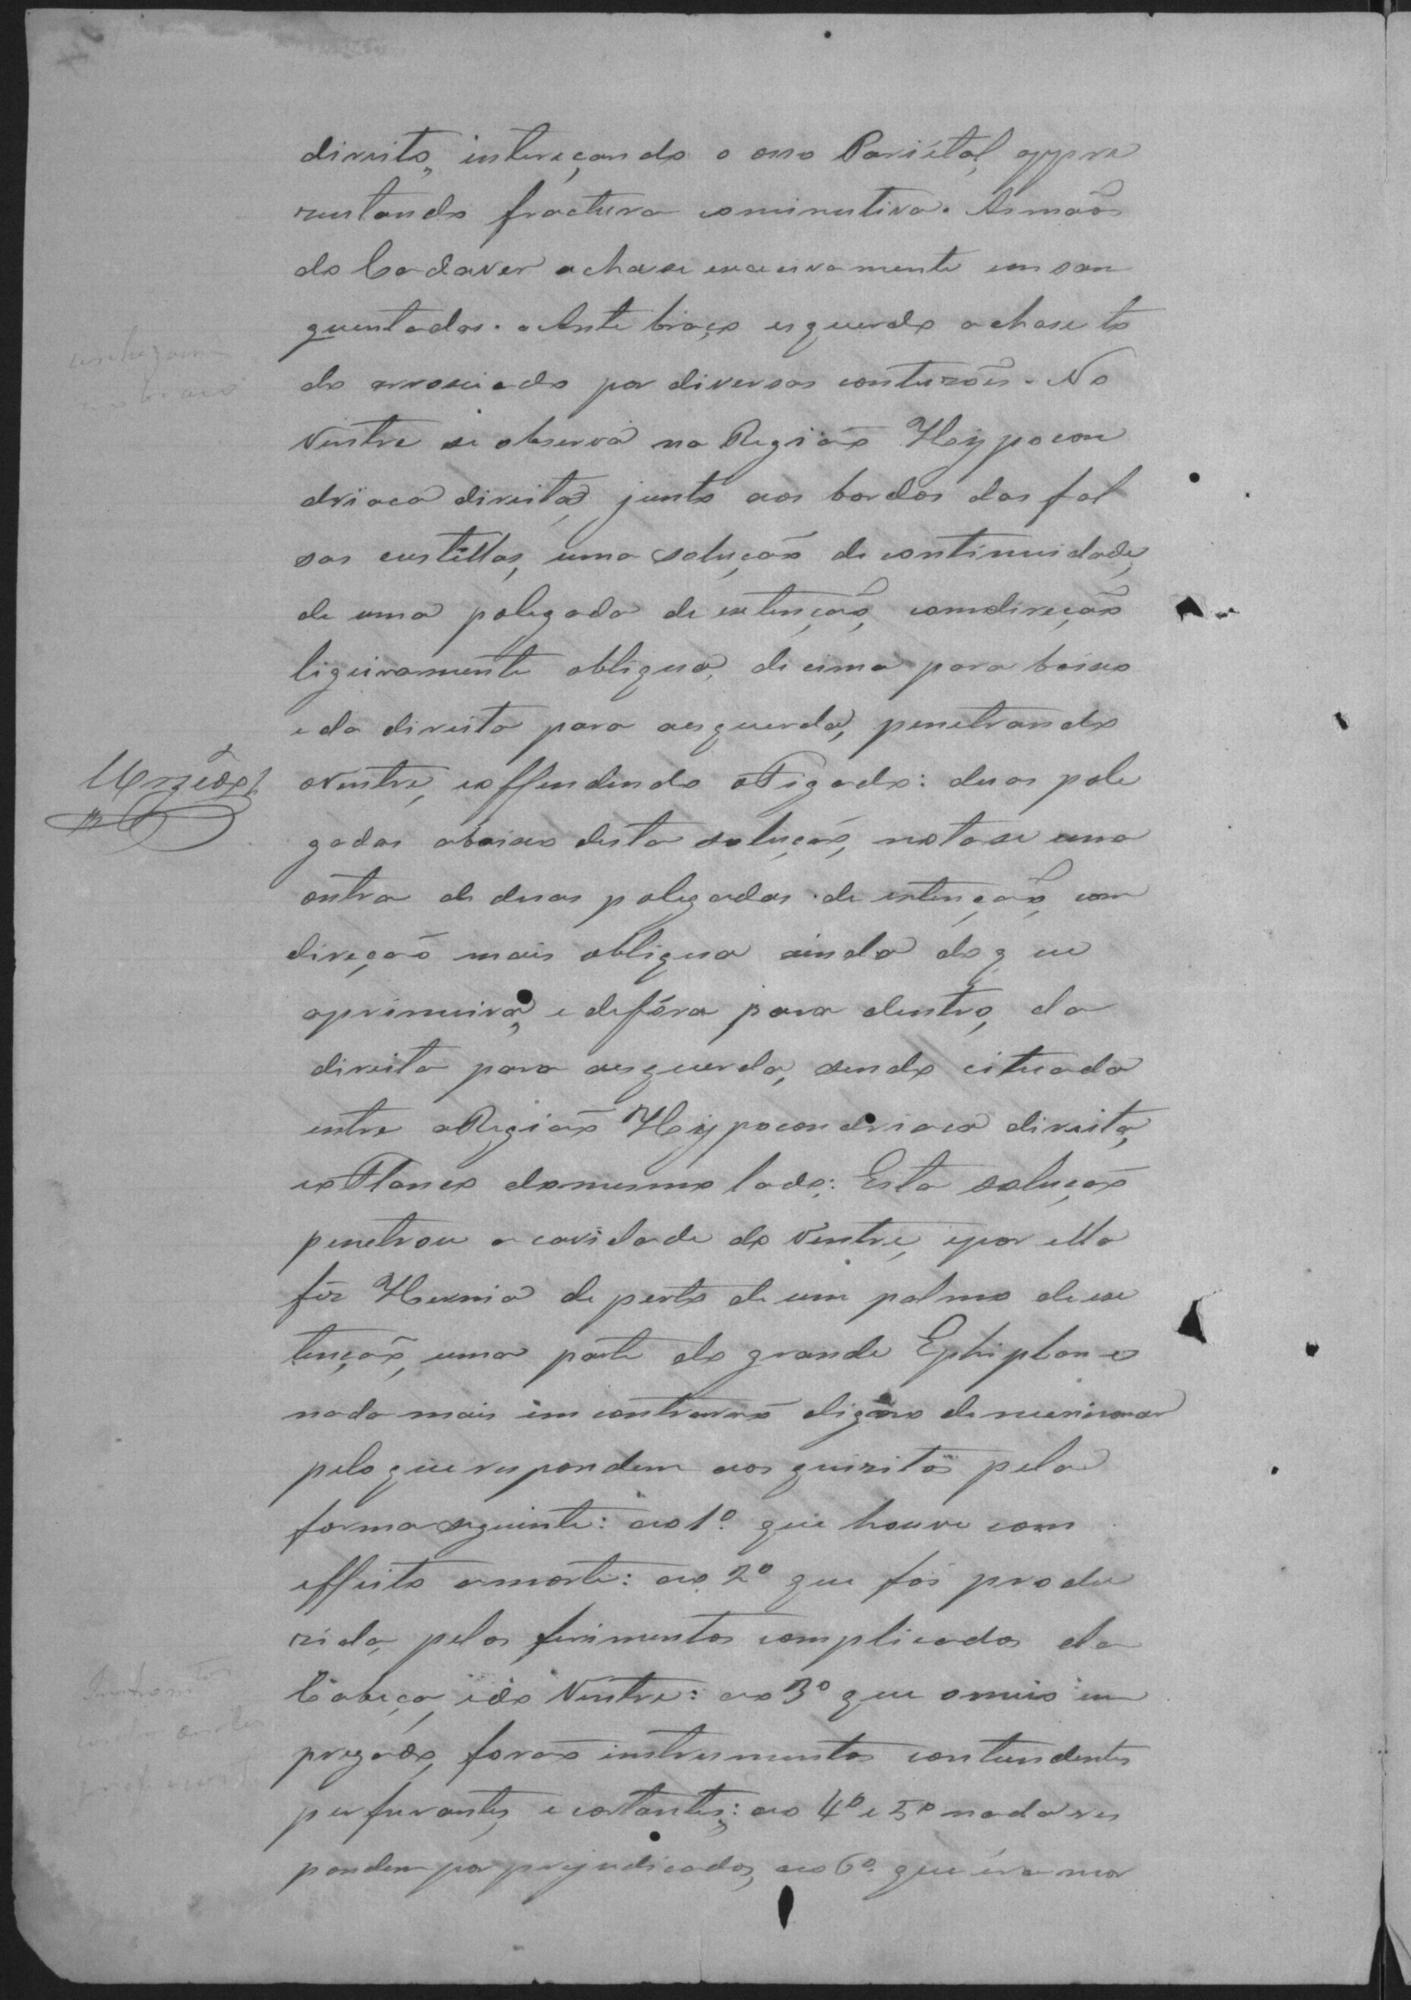 direito, intereçando o osso Pariétal, appre
zentando fractura cominutiva. As mãos
do Cadaver achase excecivamente ensan
guentadas. o Ante braço esquerdo achase to
do arroxiado por diversas contuzões. No
Ventre se observa na Região Hÿpocon
driaca direita, junto aos bordos das fal
sas custéllas, uma solução de continuidade,
de uma polegada de extenção, comdireção
ligeiramente obliqua, de cima para baixo
e da direita para aesquerda, penetrando
oVentre, eoffendendo oFigado: duas pole
gadas abaixo desta solução, notase uma
outra de duas polegadas de extenção, com
direção mais obliqua ainda doque
aprimeira, e defóra para dentro, da
direita para aesquerda, sendo cituada
entre aRegião Hÿpocondriaca direita,
eoFlanco domesmo lado: Esta solução
penetrou a cavidade do Ventre, epor ella
fez Hernia de perto de um palmo de ex
tenção, uma parte do grande Ephiplon e
nada mais incontrarão digno de mencionar
pelo que respondem aos quizitos pela
forma seguinte: ao 1º que houve com
effeito amorte: ao 2º que foi produ
zida, pelos ferimentos complicados da
Cabeça, edo Ventre: ao 3º que omeio em
pregado, forão instrumentos contundentes
perfurantes, e cortantes: ao 4º e 5º nada res
pondem por prejudicados, ao 6º que era mor